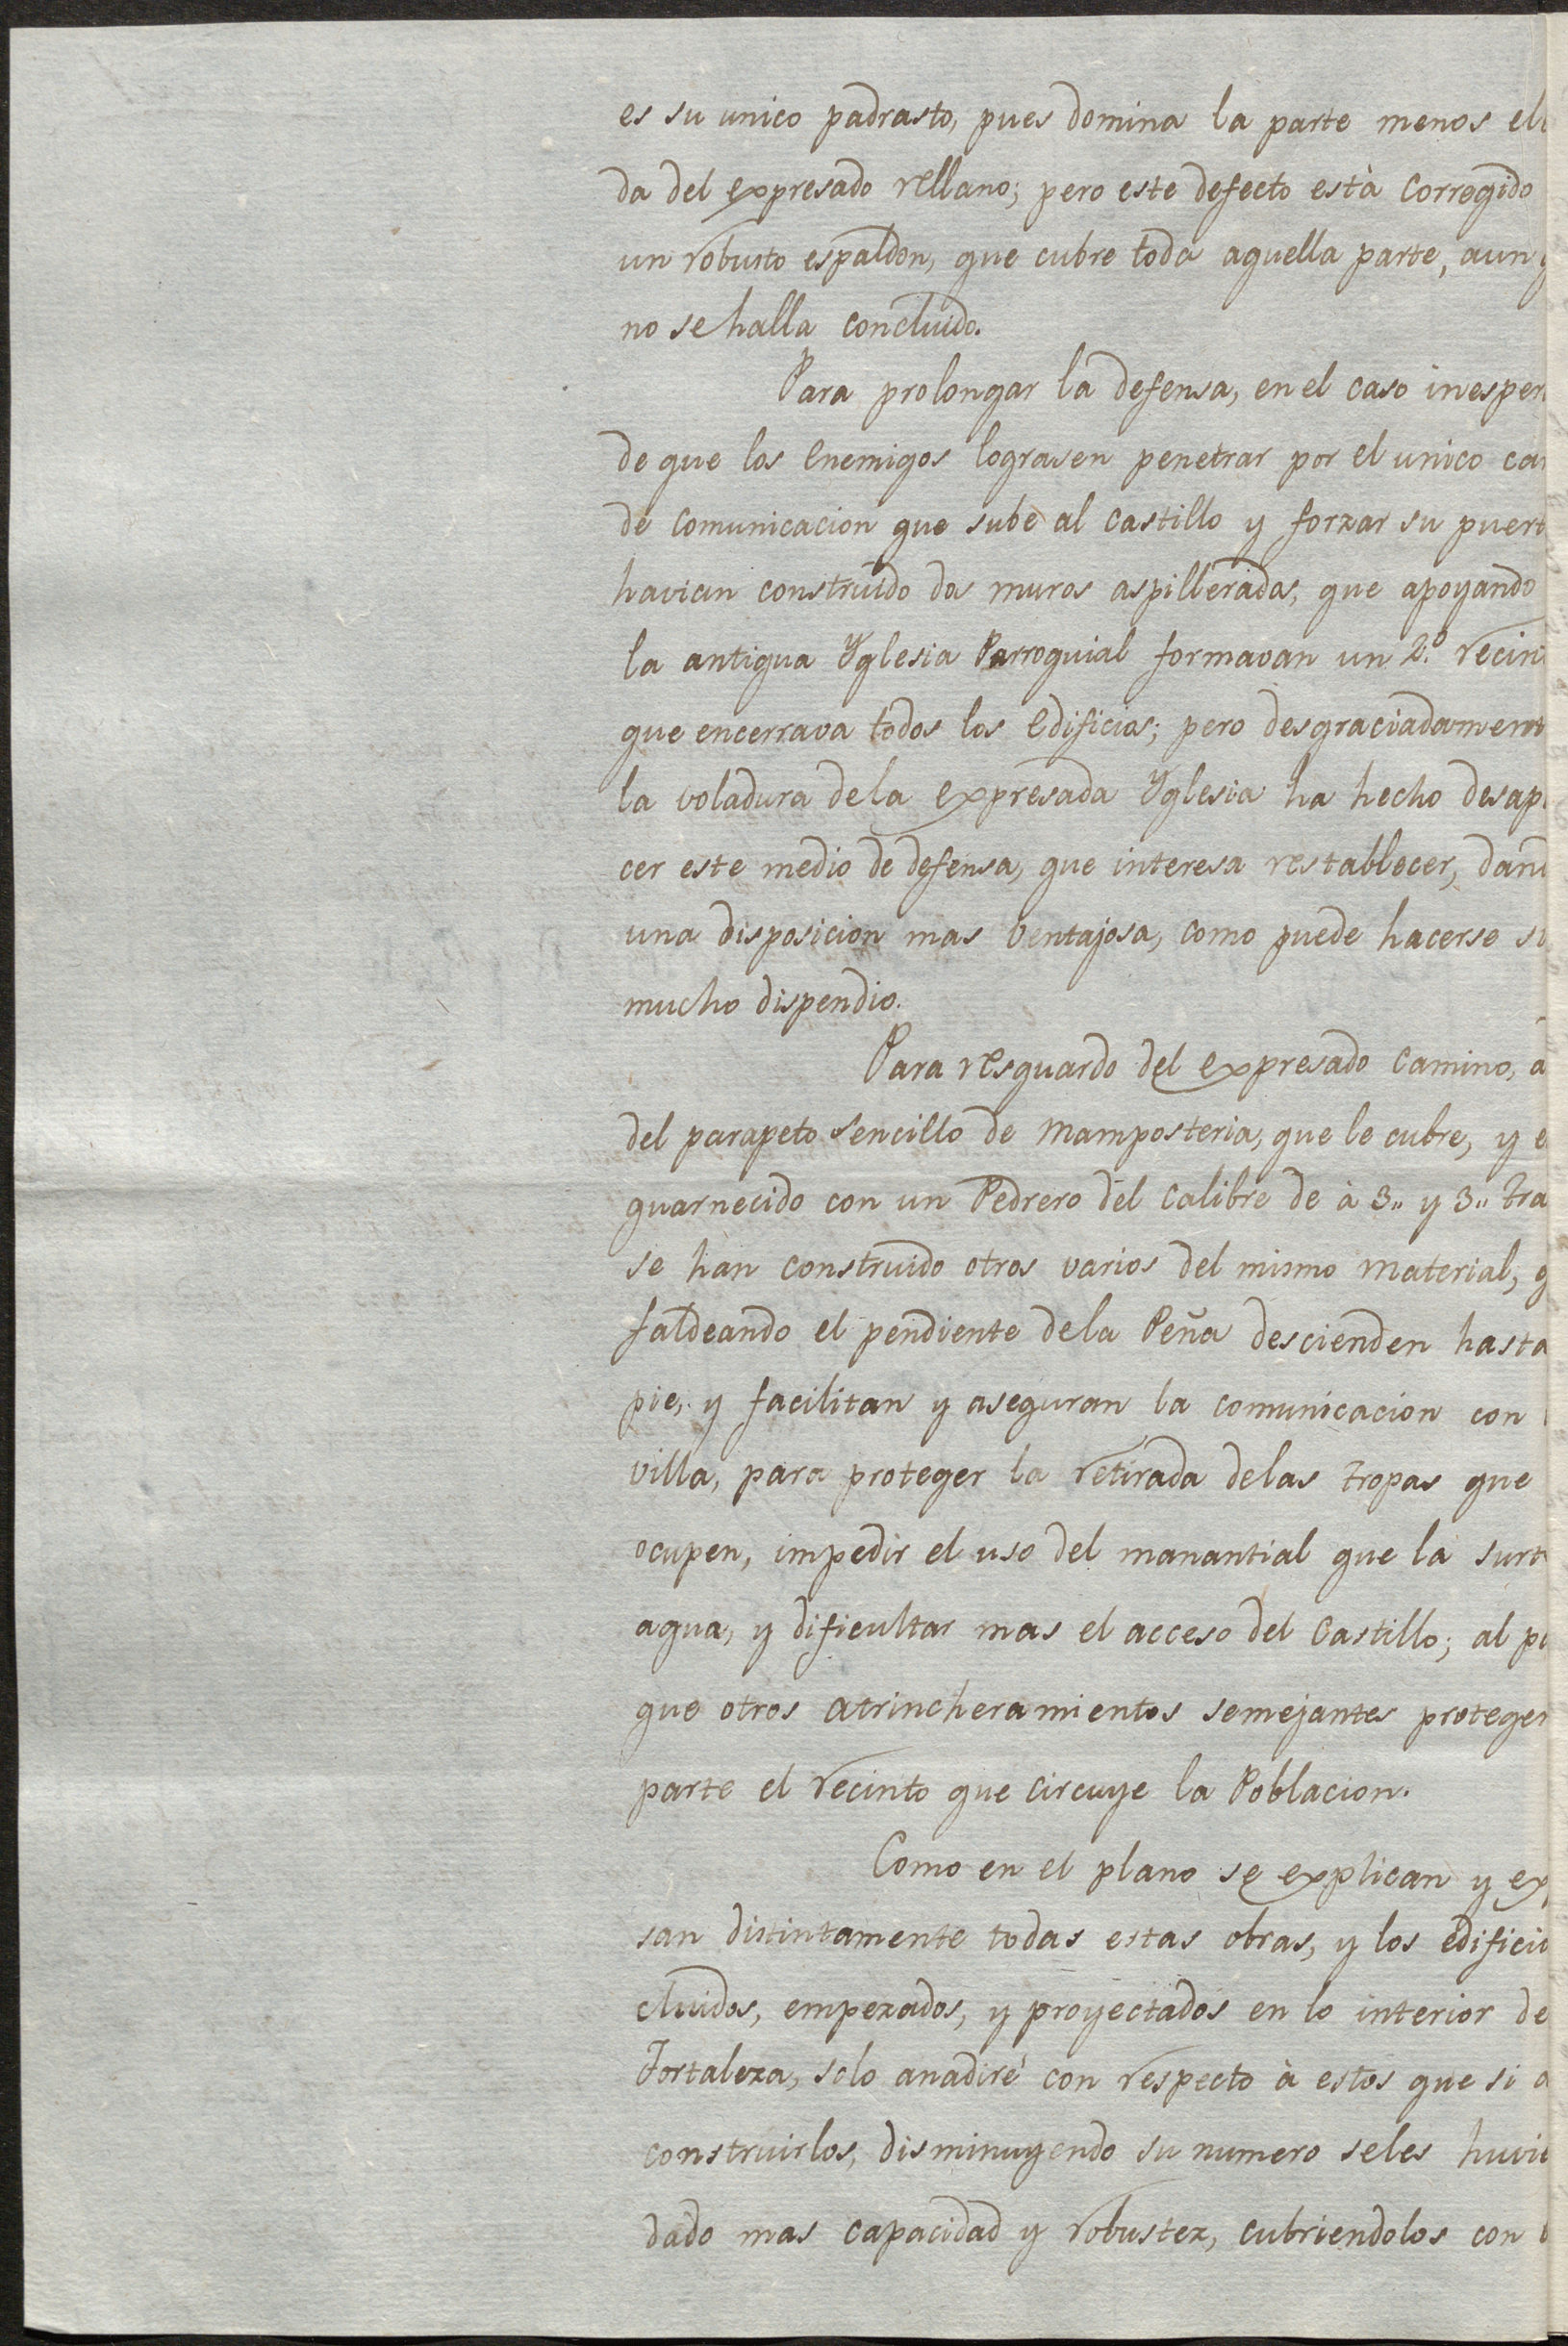 es su unico padrasto, pues domina la parte menos el
da del expresado rellano; pero este defecto està corregido
un robusto espaldon, que cubre toda aquella parte, aun
no se halla concluido.
Para prolongar la defensa, en el caso inesper
de que los Enemigos lograsen penetrar por el unico ca
de comunicacion que sube al castillo y forzar su puert
havian construido dos muros aspillerados, que apoyando
la antigua Yglesia Parroquial formavan un 2.º recin
que encerrava todos los Edificios; pero desgraciadament
la voladura dela expresada Yglesia ha hecho desap
cer este medio de defensa, que interesa restablecer, dand
una disposicion mas ventajosa, como puede hacerse si
mucho dispendio.
Para resguardo del expresado camino, a
del parapeto sencillo de Mamposteria, que le cubre, y e
guarnecido con un Pedrero del calibre de à 3.. y 3.. tra
se han construido otros varios del mismo material, q
faldeando el pendiente dela Peña descienden hasta
pie, y facilitan y aseguran la comunicacion con
villa, para proteger la retirada delas tropas que
ocupen, impedir el uso del manantial que la surt
agua, y dificultar mas el acceso del Castillo; al p
que otros atrincheramientos semejantes protegen
parte el recinto que circuye la Poblacion.
Como en el plano se explican y exp
san distintamente todas estas obras, y los edificio
cluidos, empezados, y proyectados en lo interior de
Fortaleza, solo anadiré con respecto à estos que si a
construirlos, disminuyendo su numero seles huvie
dado mas capacidad y robustez, cubriendolos con